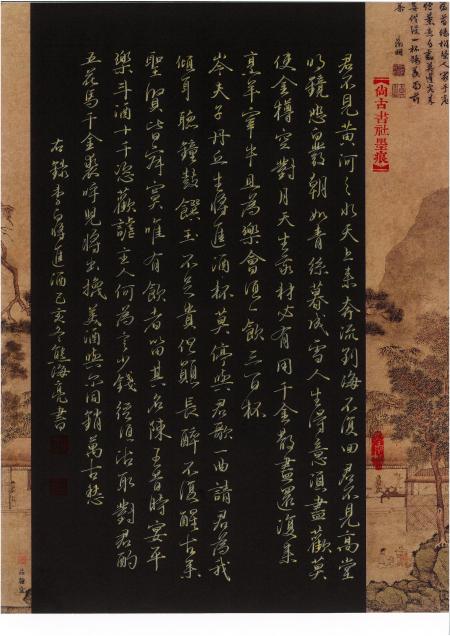 【尚古書社墨痕】
君不見黃河之水天上來奔流到海不復回君不見高堂
明鏡悲白髮朝如青絲暮成雪人生得意須盡歡莫
使金樽空對月天生我材必有用千金散盡還復來
烹羊宰牛且為樂會須一飲三百杯
岑夫子丹丘生將進酒杯莫停與君歌一曲請君為我
傾耳聽鐘鼓饌玉不足貴但願長醉不復醒古來
聖賢皆寂寞唯有飲者留其名陳王昔時宴平
樂斗酒十千恣歡謔主人何為言少錢徑須沽取對君酌
五花馬千金裘呼兒將出換美酒與爾同銷萬古愁
右錄李白將進酒乙亥冬熊海亮書